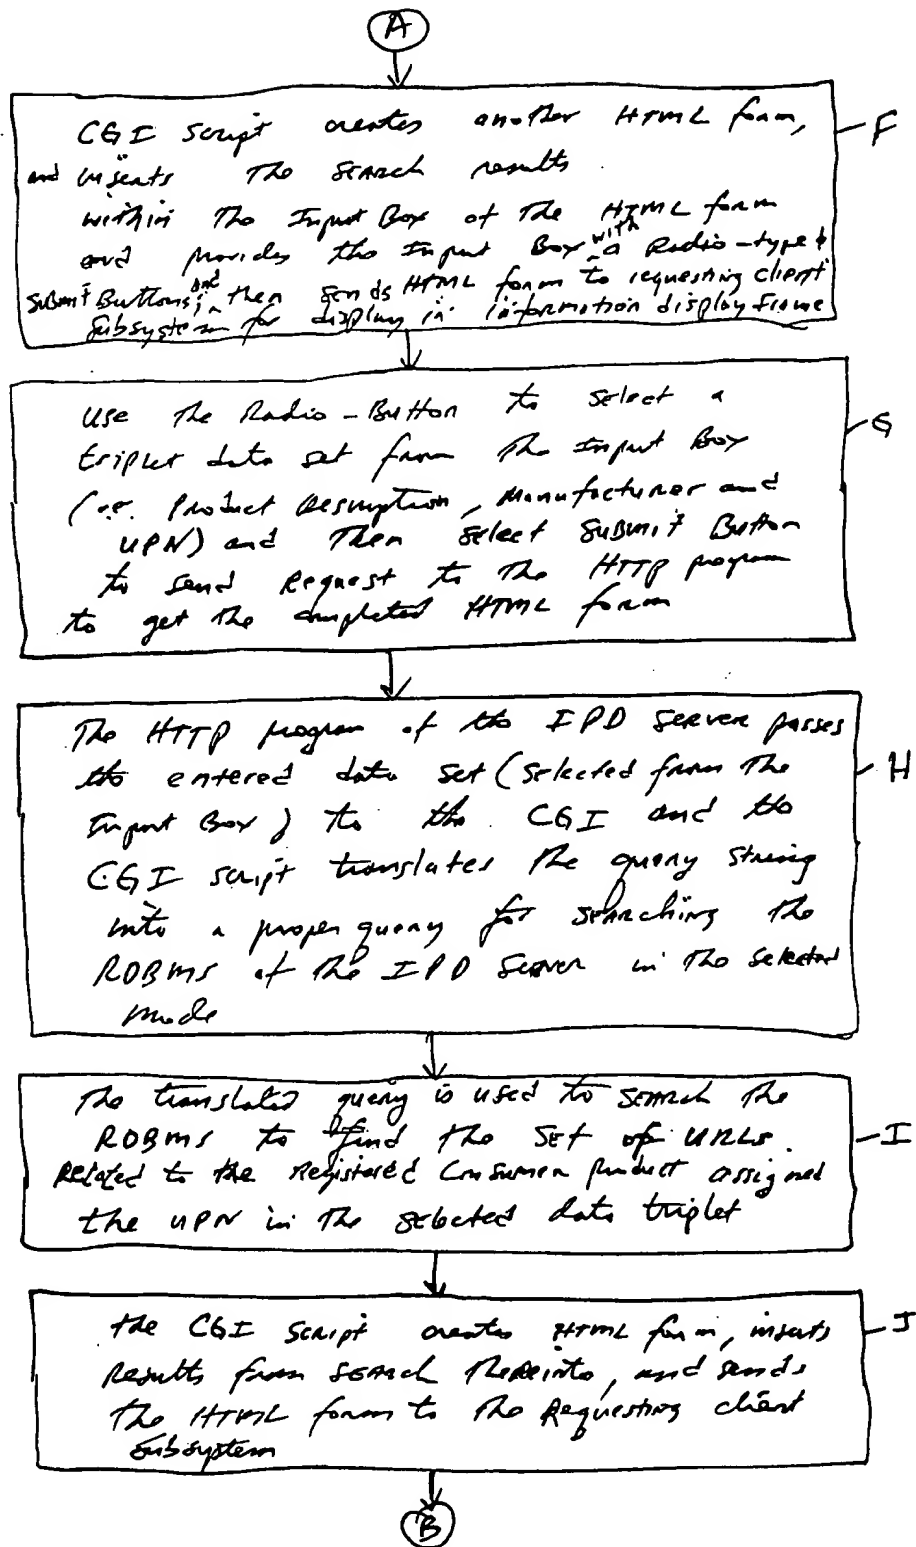 A
CGI script creates another HTML form,
and inserts the search results
within the Input Box of the HTML form
and provides the Input Box with a Radio-type &
Submit Buttons; and then sends HTML form to requesting client
subsystem for display in information display frame
F
use the Radio-Button to select a
triplet data set from the Input Box
(i.e. Product Description, Manufacturer and
UPN) and then select Submit Button
to send Request to the HTTP program
to get the completed HTML form
G
The HTTP program of the IPD Server passes
the entered data set (selected from the
Input Box) to the CGI and the
CGI script translates the query string
into a proper query for searching the
RDBMS of the IPD Server in the selected
mode
H
The translated query is used to search the
RDBMS to find the set of URLs
Related to the registered Consumer product assigned
the UPN in the selected data triplet
I
the CGI script creates HTML form, inserts
Results from search thereinto, and sends
the HTML form to the Requesting client
subsystem
J
B